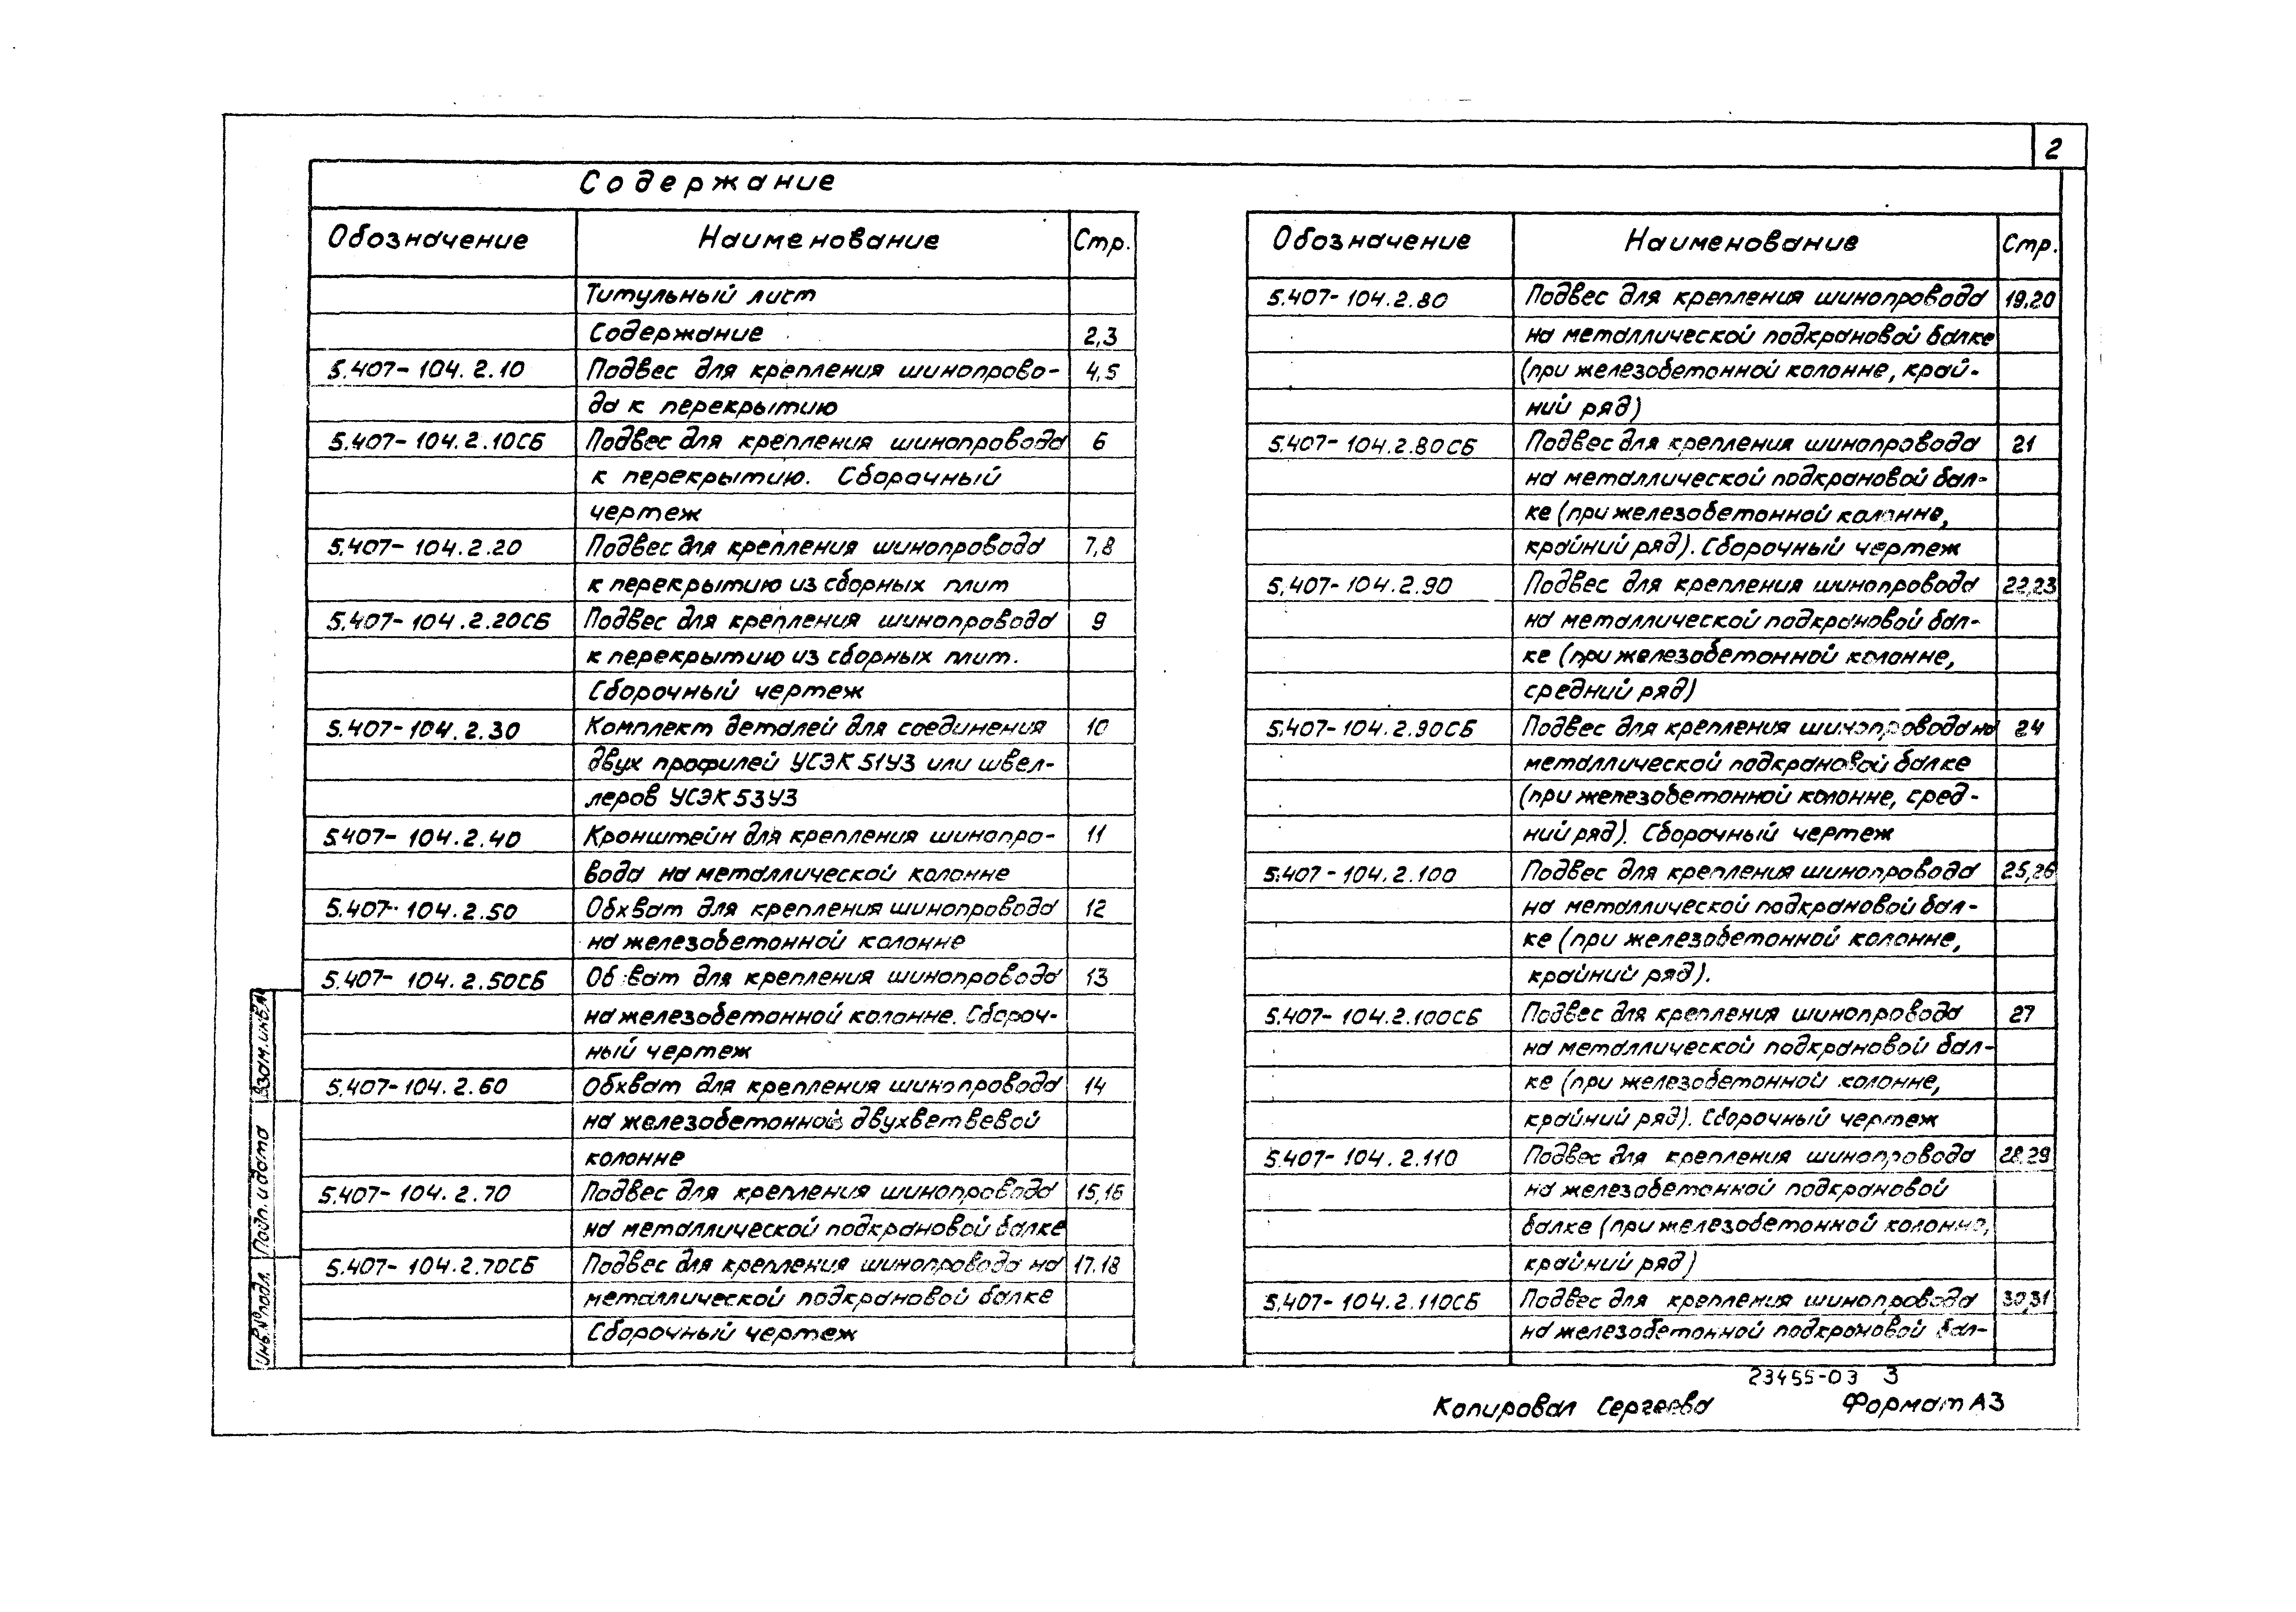 2
Содержание
Обозначение Наименование Стр.
Титульный лист
Содержание 2,3
5.407-104.2.10 Подвес для крепления шинопрово- 4,5
да к перекрытию
5.407-104.2.10СБ Подвес для крепления шинопровода 6
к перекрытию. Сборочный
чертеж
5.407-104.2.20 Подвес для крепления шинопровода 7,8
к перекрытию из сборных плит
5.407-104.2.20СБ Подвес для крепления шинопровода 9
к перекрытию из сборных плит.
Сборочный чертеж
5.407-104.2.30 Комплект деталей для соединения 10
двух профилей УСЭК 51У3 или швел-
леров УСЭК 53У3
5.407-104.2.40 Кронштейн для крепления шинопро- 11
вода на металлической колонне
5.407-104.2.50 Обхват для крепления шинопровода 12
на железобетонной колонне
5.407-104.2.50СБ Обхват для крепления шинопровода 13
на железобетонной колонне. Сбороч-
ный чертеж
5.407-104.2.60 Обхват для крепления шинопровода 14
на железобетонной двухветвевой
колонне
5.407-104.2.70 Подвес для крепления шинопровода 15,16
на металлической подкрановой балке
5.407-104.2.70СБ Подвес для крепления шинопровода на 17.18
металлической подкрановой балке
Сборочный чертеж
Обозначение Наименование Стр.
5.407-104.2.80 Подвес для крепления шинопровода 19,20
на металлической подкрановой балке
(при железобетонной колонне, край-
ний ряд)
5.407-104.2.80СБ Подвес для крепления шинопровода 21
на металлической подкрановой бал-
ке (при железобетонной колонне,
крайний ряд). Сборочный чертеж
5.407-104.2.90 Подвес для крепления шинопровода 22,23
на металлической подкрановой бал-
ке (при железобетонной колонне,
средний ряд)
5.407-104.2.90СБ Подвес для крепления шинопровода на 24
металлической подкрановой балке
(при железобетонной колонне, сред-
ний ряд). Сборочный чертеж
5.407-104.2.100 Подвес для крепления шинопровода 25,26
на металлической подкрановой бал-
ке (при железобетонной колонне,
крайний ряд).
5.407-104.2.100СБ Подвес для крепления шинопровода 27
на металлической подкрановой бал-
ке (при железобетонной колонне,
крайний ряд). Сборочный чертеж
5.407-104.2.110 Подвес для крепления шинопровода 28,29
на железобетонной подкрановой
балке (при железобетонной колонне,
крайний ряд)
5.407-104.2.110СБ Подвес для крепления шинопровода 30,31
на железобетонной подкрановой бал-
Взам.инв.№
Подп. и дата
Инв.№ подл.
23455-03 3
Копировал Сергеева Формат А3